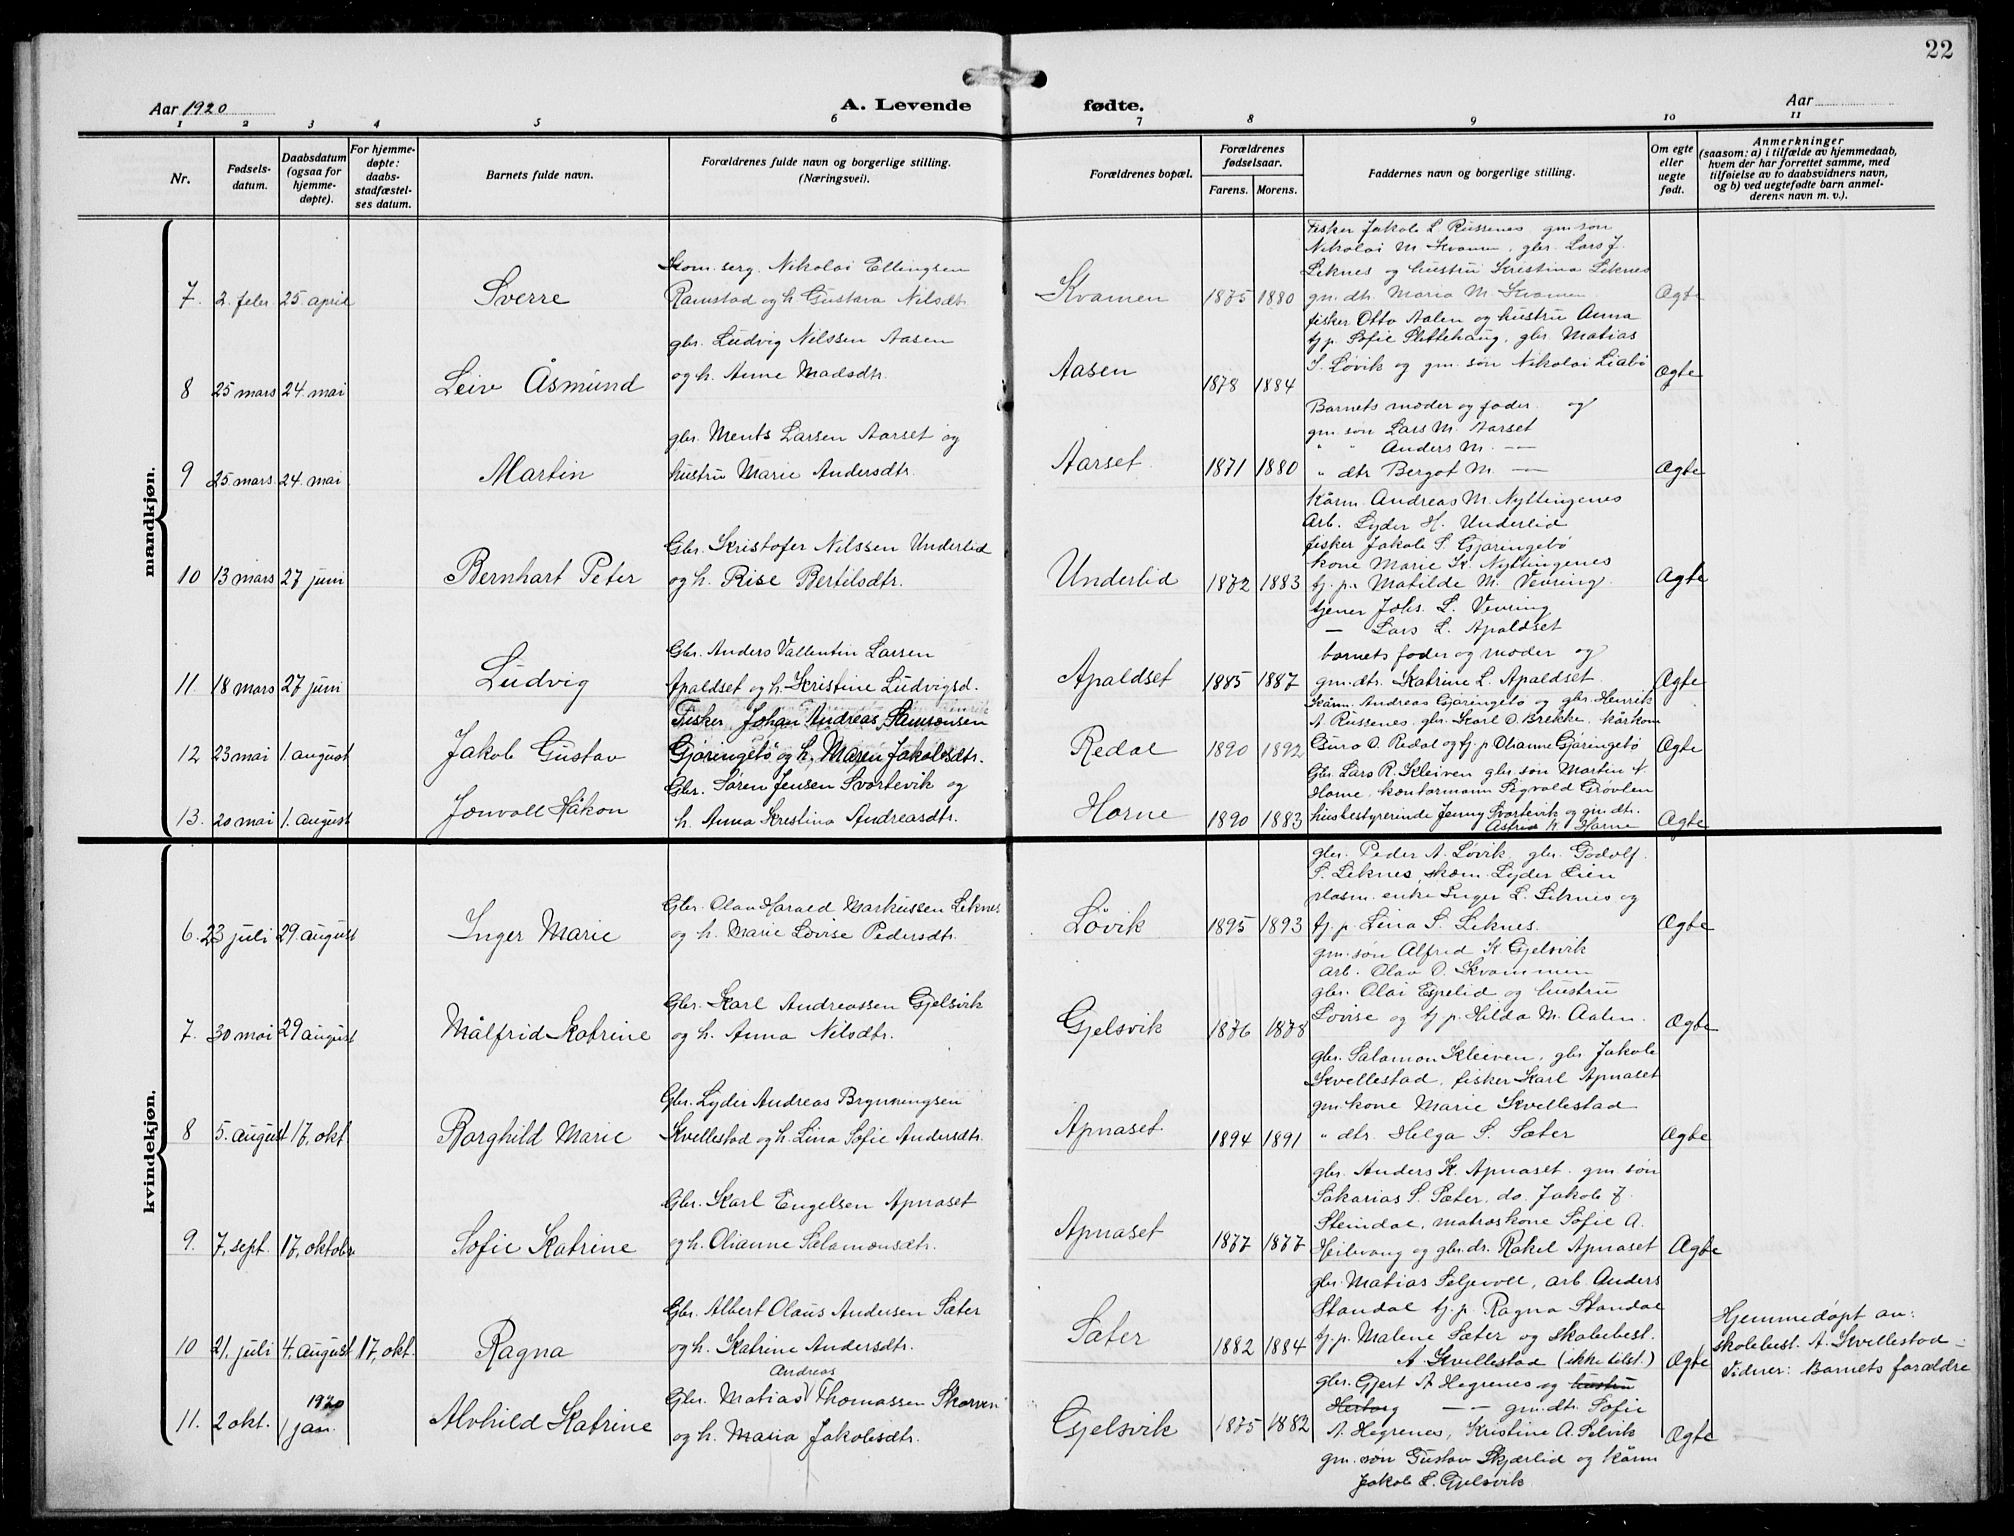 22
Aar 1920
A. Levende fødte.
Aar
1 2 3 4 5 6 7 8 9 10 11
Nr.
Fødsels-
datum.
Daabsdatum
(ogsaa for
hjemme-
døpte).
For hjemme-
døpte:
daabs-
stadfæstel-
ses datum.
Barnets fulde navn.
Forældrenes fulde navn og borgerlige stilling.
(Næringsvei).
Forældrenes bopæl.
Forældrenes
fødselsaar.
Farens. Morens.
Faddernes navn og borgerlige stilling.
Om egte
eller
uegte
født.
Anmerkninger
(saasom: a) i tilfælde av hjemmedaab,
hvem der har forrettet samme, med
tilføielse av to daabsvidners navn,
og b) ved uegtefødte barn anmel-
derens navn m. v.).
mandkjøn.
7. 2. febr 25 april
Sverre
Nikolai Ellingsen
Ramstad og h. Gustava Nilsdtr.
Kvamen
1875 1880
Fisker Jakob L. Russenes gm. søn
Nikolai M. Kvamen, gbr. Lars J.
Leknes og hustru Kristina Leknes
gm. dtr. Maria M. Kvamen
Ægte
8 25 mars 24 mai
Leiv Åsmund
gbr. Ludvig Nilssen Aasen
og h. Anne Madsdtr.
Aasen
1878 1884
fisker Otto Aalen og hustru Anna
tj. p. Sofie Slettehaug, gbr. Matias
S. Løvik og gm. søn Nikolai Liabø
Ægte
9 25 mars 24 mai
Martin
gbr. Ments Larsen Aarset og
hustru Marie Andersdtr.
Aarset
1871 1880
Barnets moder og fader og
gm. søn Lars M. Aarset
" " Anders M. —
" dtr Bergot M. —
Ægte
10 13 mars 27 juni
Bernhart Peter
Gbr. Kristofer Nilssen Underlid
og h. Rise Bertilsdtr.
Underlid
1872 1883
Kårm. Andreas M. Nyttingenes
Arb. Lyder H. Underlid
fisker Jakob S. Gjøringebø
kone Marie K. Nyttingenes
tj. p. Matilde M. Vevring
tjener Johs. L. Vevring
— Lars L. Apaldset
Ægte
11 18 mars 27 juni
Ludvig
Gbr. Anders Vallentin Larsen
Apaldset og h. Kristine Ludvigsd.
Apaldset
1885 1887
barnets fader og moder og
gm. dtr. Katrine L. Apaldset
Ægte
12 23 mai 1. august
Jakob Gustav
Fisker Johan Andreas Samsonsen
Gjøringebø og h. Maren Jakobsdtr.
Redal
1890 1892
Kårm. Andreas Gjøringebø og gbr. Henrik
A. Russenes. gbr. Karl O. Brekke. kårkone
Guro O. Redal og tj. p Olianne Gjøringebø
Ægte
13. 20 mai 1. august
Jonvall Håkon
Gbr. Søren Jensen Svortevik og
h. Anna Kristina Andreasdtr.
Horne
1890 1883
Gbr Lars R. Kleiven gbr. søn Martin N.
Horne, kontormann Sigvald Grøvlen
husbestyrerinde Jenny Svortevik og gm. dtr.
Astrid N. Horne
Ægte
kvindekjøn.
6. 23 juli 29 august
Inger Marie
Gbr. Olav Harald Markussen Leknes
og h. Marie Lovise Pedersdtr.
Løvik
1895 1893
gbr. Peder A. Løvik, gbr. Godolf
S. Leknes, skom. Lyder Lien
plasm. enke Inger L. Leknes og
tj. p. Lina S. Leknes.
Ægte
7. 30 mai 29 august
Målfrid Katrine
Gbr. Karl Andreassen Gjelsvik
og h. Anna Nilsdtr.
Gjelsvik
1876 1878
gm. søn Alfred K. Gjelsvik
arb. Olav O. Kvammen
gbr. Olai Espelid og hustru
Lovise og tj. p. Hilda M. Aalen.
Ægte
8 5. august 17. okt
Borghild Marie
Gbr. Lyder Andreas Brynningsen
Kvellestad og h. Lina Sofie Andersdtr.
Apnaset
1894 1891
gbr. Salamon Kleiven, gbr Jakob
Kvellestad, fisker Karl Apnaset
gm. kone Marie Kvellestad
" dtr. Helga S. Sæter
Ægte
9. 7. sept. 17. oktobr
Sofie Katrine
Gbr. Karl Engelsen Apnaset
og h. Olianne Salamonsdtr.
Apnaset
1877 1877
gbr. Anders K. Apnaset. gm søn
Sakarias S. Sæter, do. Jakob J.
Steindal, matroskone Sofie A.
Heilevang og gbr. dr. Rakel Apnaset
Ægte
10 21. juli 4. august 17. okt.
Ragna
Gbr. Albert Olaus Andersen Sæter
og h. Katrine Andersdtr.
Sæter
1882 1884
gbr. Matias Seljevoll, arb. Anders
Standal tj. p. Ragna Standal
tj. p. Malene Sæter og skolebest.
A. Kvellestad (ikke tilst.)
Ægte
Hjemmedøpt av:
skolebest. A. Kvellestad
Vidner: Barnets forældre
11. 2 okt. 1920
1 jan.
Alvhild Katrine
Andreas
Gbr. Matias Thomassen Skorven
og h. Maria Jakobsdtr.
Gjelsvik
1875 1882
gbr. Gjert A Hegrenes og hustru
Herborg — — gm. dtr. Sofie
A. Hegrenes, Kristine A. Selvik
gm. søn Gustav Skjærlid og kårm
Jakob L. Gjelsvik
Ægte